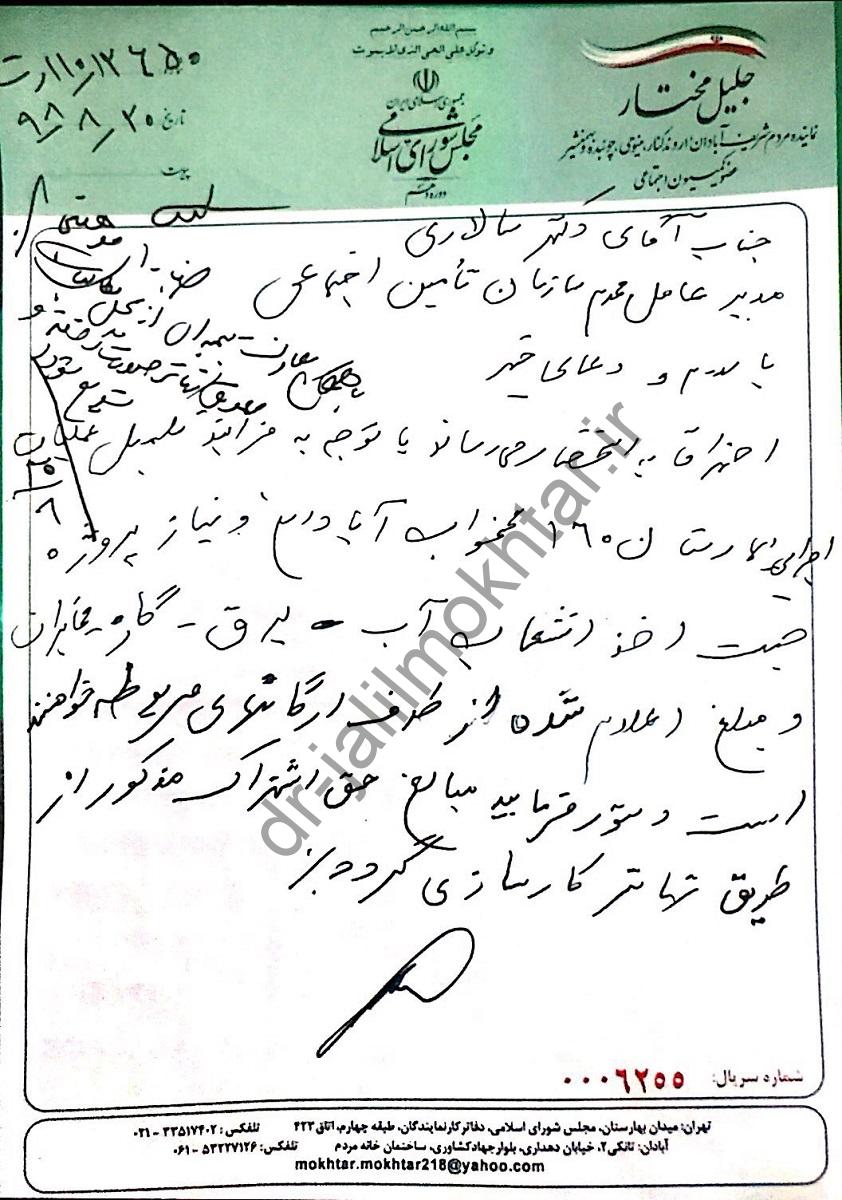 بسم الله الرحمن الرحیم
و توکل علی الحی الذی لا یموت
جمهوری اسلامی ایران
مجلس شورای اسلامی
دوره دهم
جلیل مختار
نماینده مردم شریف آبادان، اروندکنار، مینوحی، چوئبده و بهمنشیر
عضو کمیسیون اجتماعی
۱۱۰/۱۲۶۵۰/ت
تاریخ ۹۸/۸/۲۰
پیوست
جناب آقای دکتر سالاری
مدیر عامل محترم سازمان تأمین اجتماعی
با سلام و دعای خیر
احتراما به استحضار می‌رساند با توجه به فرایند تکمیل عملیات
اجرایی بیمارستان ۱۶۰ تختخوابی آبادان و نیاز پروژه
جهت اخذ انشعاب آب - برق - گاز - مخابرات
و مبلغ اعلام شده از طرف ارگانهای مربوطه خواهشمند
است دستور فرمایید مبالغ حق اشتراک مذکور از
طریق تهاتر کارسازی گردد
dr-jalilmokhtar.ir
شماره سریال: ۰۰۰۶۲۵۵
تهران: میدان بهارستان، مجلس شورای اسلامی، دفاتر کار نمایندگان، طبقه چهارم، اتاق ۴۲۳ تلفکس: ۳۳۵۱۷۴۰۲ - ۰۲۱
آبادان: تانکی۲، خیابان دهداری، بلوار جهاد کشاورزی، ساختمان خانه مردم تلفکس: ۵۳۲۲۷۱۲۶ - ۰۶۱
mokhtar.mokhtar218@yahoo.com